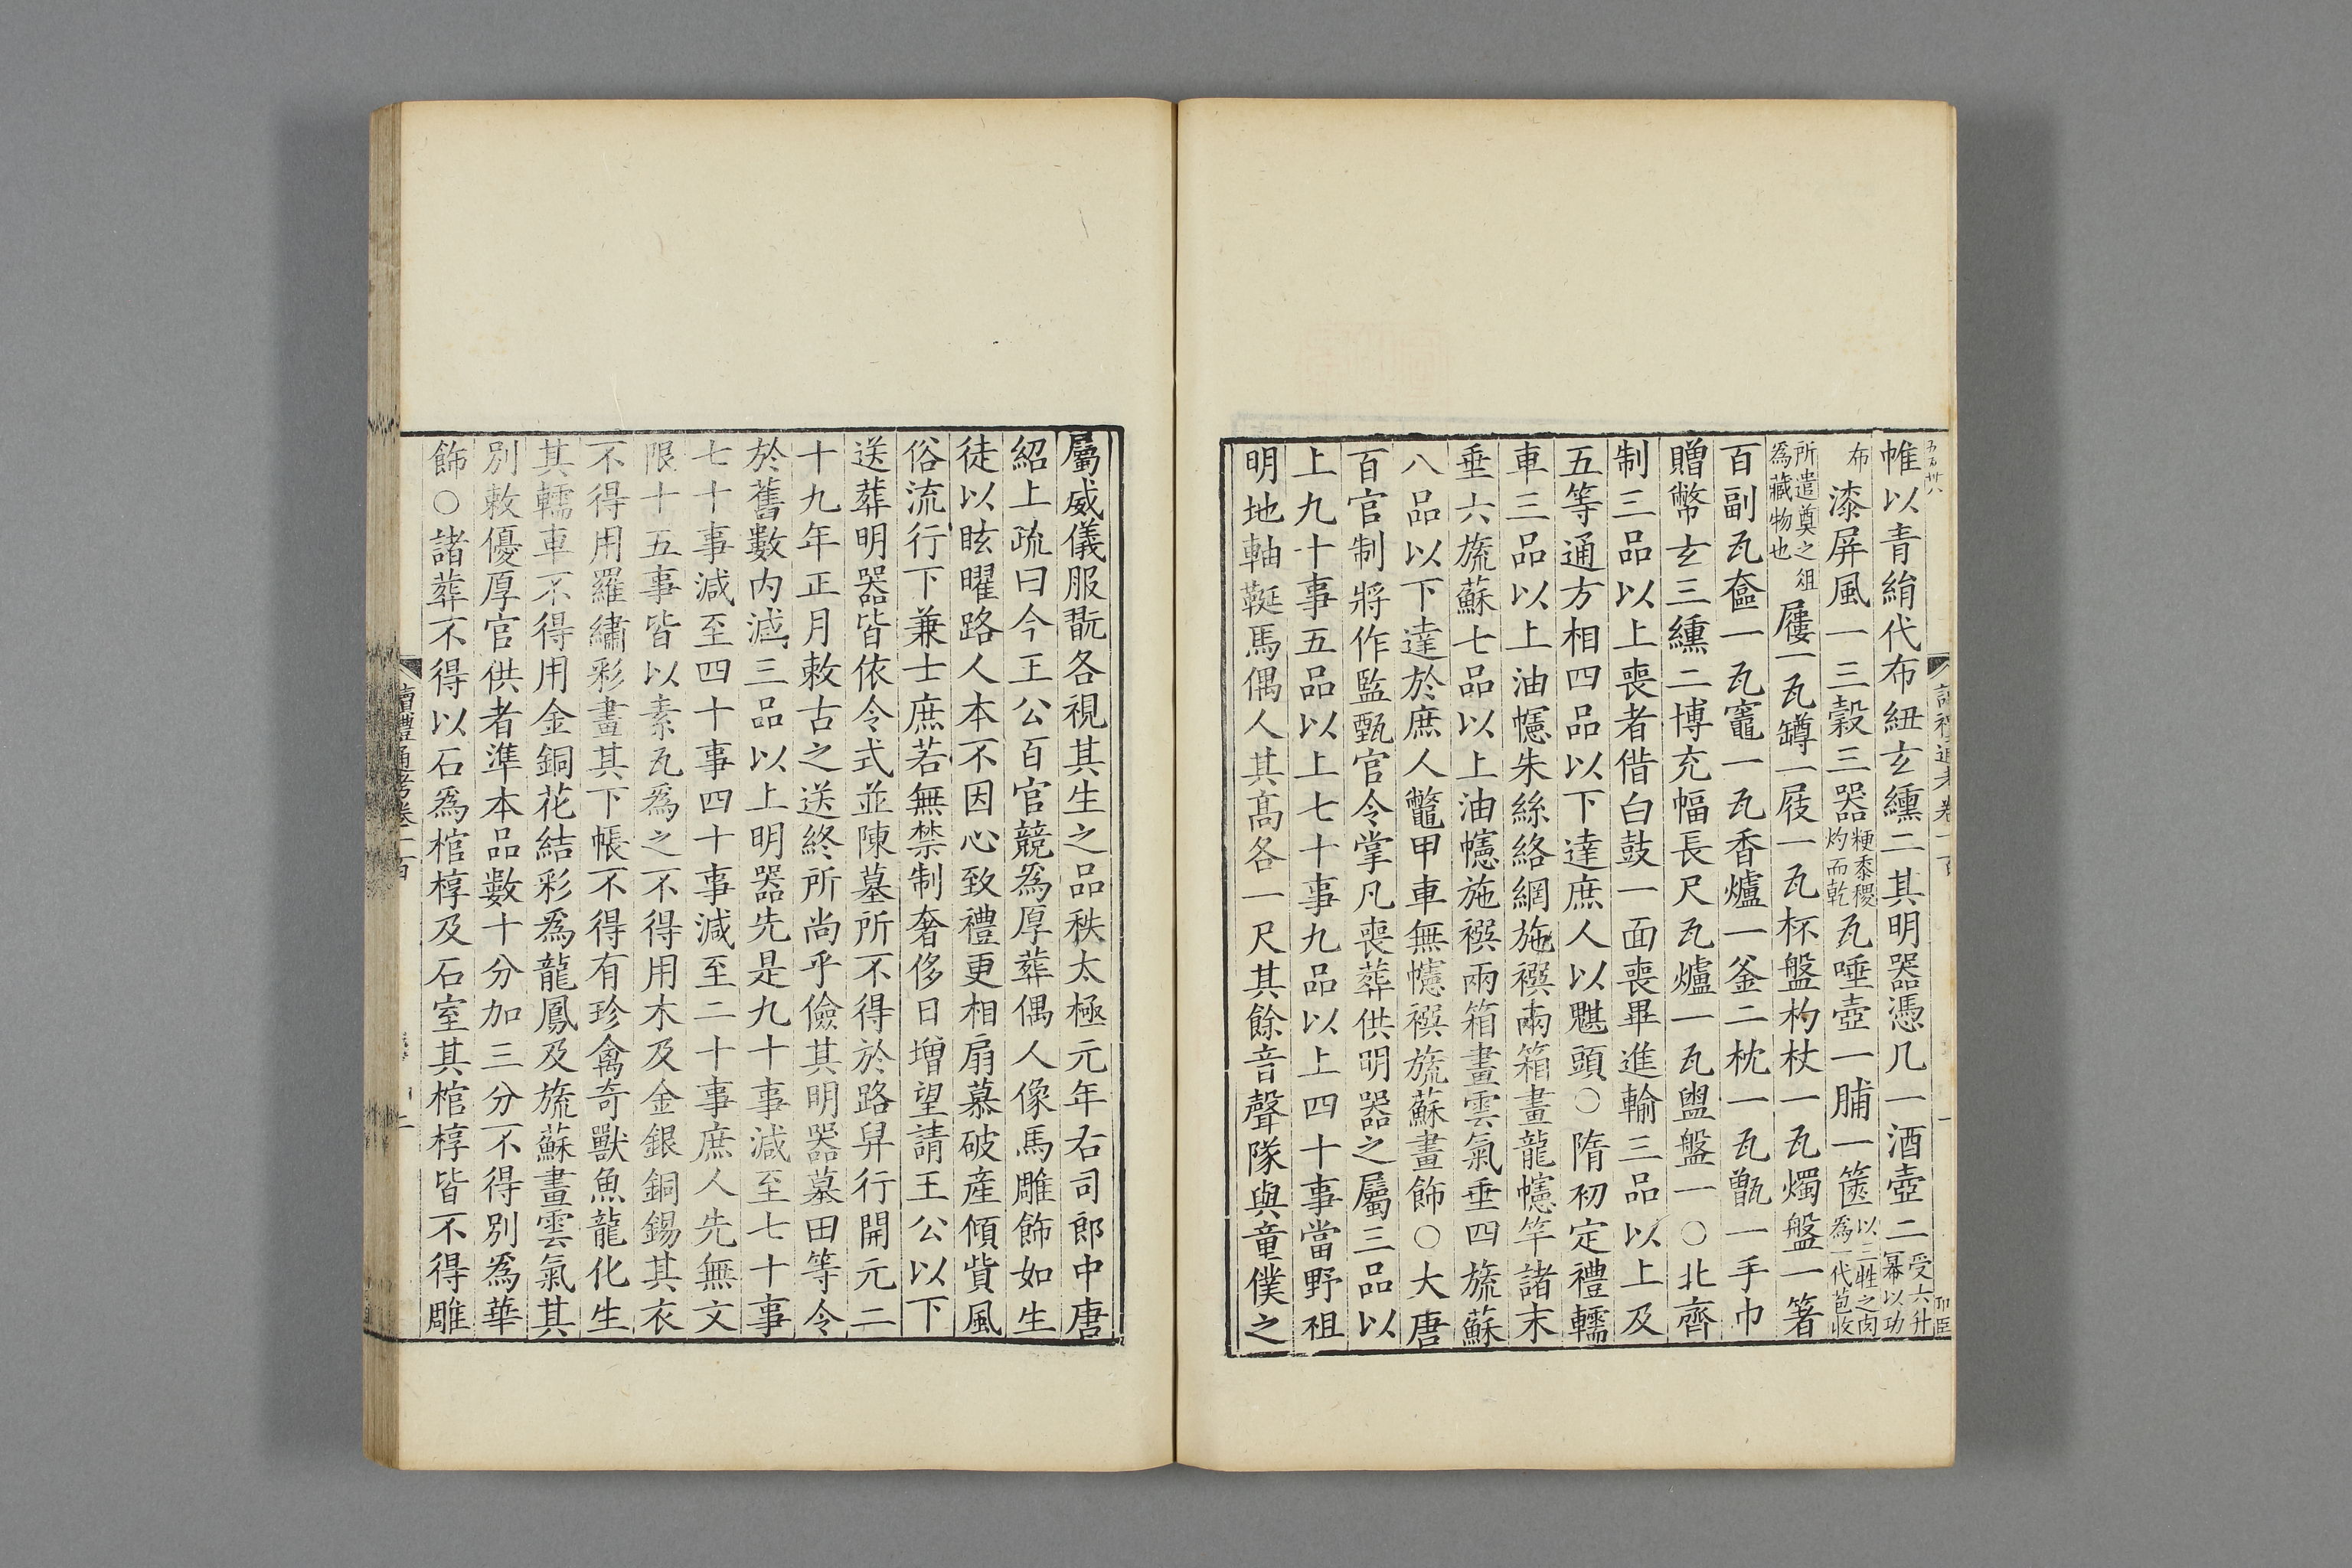 帷以青絹代布紐玄纁二其明器憑几一酒壺二受六升冪以功
布漆屏風一三穀三器粳黍稷灼而乾瓦唾壺一脯一篋以三牲之肉爲一代苞收
所遣奠之俎爲藏物也屨一瓦罇一屐一瓦杯盤杓杖一瓦燭盤一箸
百副瓦奩一瓦竈一瓦香爐一釜二枕一瓦甑一手巾
贈幣玄三纁二博充幅長尺瓦爐一瓦盥盤一○北齊
制三品以上喪者偕白鼓一面喪畢進輸三品以上及
五等通方相四品以下達庶人以魌頭○隋初定禮轜
車三品以上油幰朱絲絡網施襈兩箱畫龍幰竿諸末
垂六旒蘇七品以上油幰施襈兩箱畫雲氣垂四旒蘇
八品以下達於庶人鼈甲車無幰襈旒蘇畫飾○大唐
百官制將作監甄官令掌凡喪葬供明器之屬三品以
上九十事五品以上七十事九品以上四十事當野祖
明地軸䩠馬偶人其高各一尺其餘音聲隊與童僕之
屬威儀服翫各視其生之品秩太極元年右司郎中唐
紹上疏曰今王公百官競為厚葬偶人像馬雕飾如生
徒以眩曜路人本不因心致禮更相扇慕破產傾貲風
俗流行下兼士庶若無禁制奢侈日增望請王公以下
送葬明器皆依令式並陳墓所不得於路舁行開元二
十九年正月敕古之送終所尚乎儉其明器墓田等令
於舊數內遞減三品以上明器先是九十事減至七十事
七十事減至四十事四十事減至二十事庶人先無文
限十五事皆以素瓦為之不得用木及金銀銅錫其衣
不得用羅繡彩畫其下帳不得有珍禽奇獸魚龍化生
其轜車不得用金銅花結彩爲龍鳳及旒蘇畫雲氣其
別敕優厚官供者準本品數十分加三分不得別爲華
飾○諸葬不得以石爲棺槨及石室其棺槨皆不得雕
讀禮通考卷一百